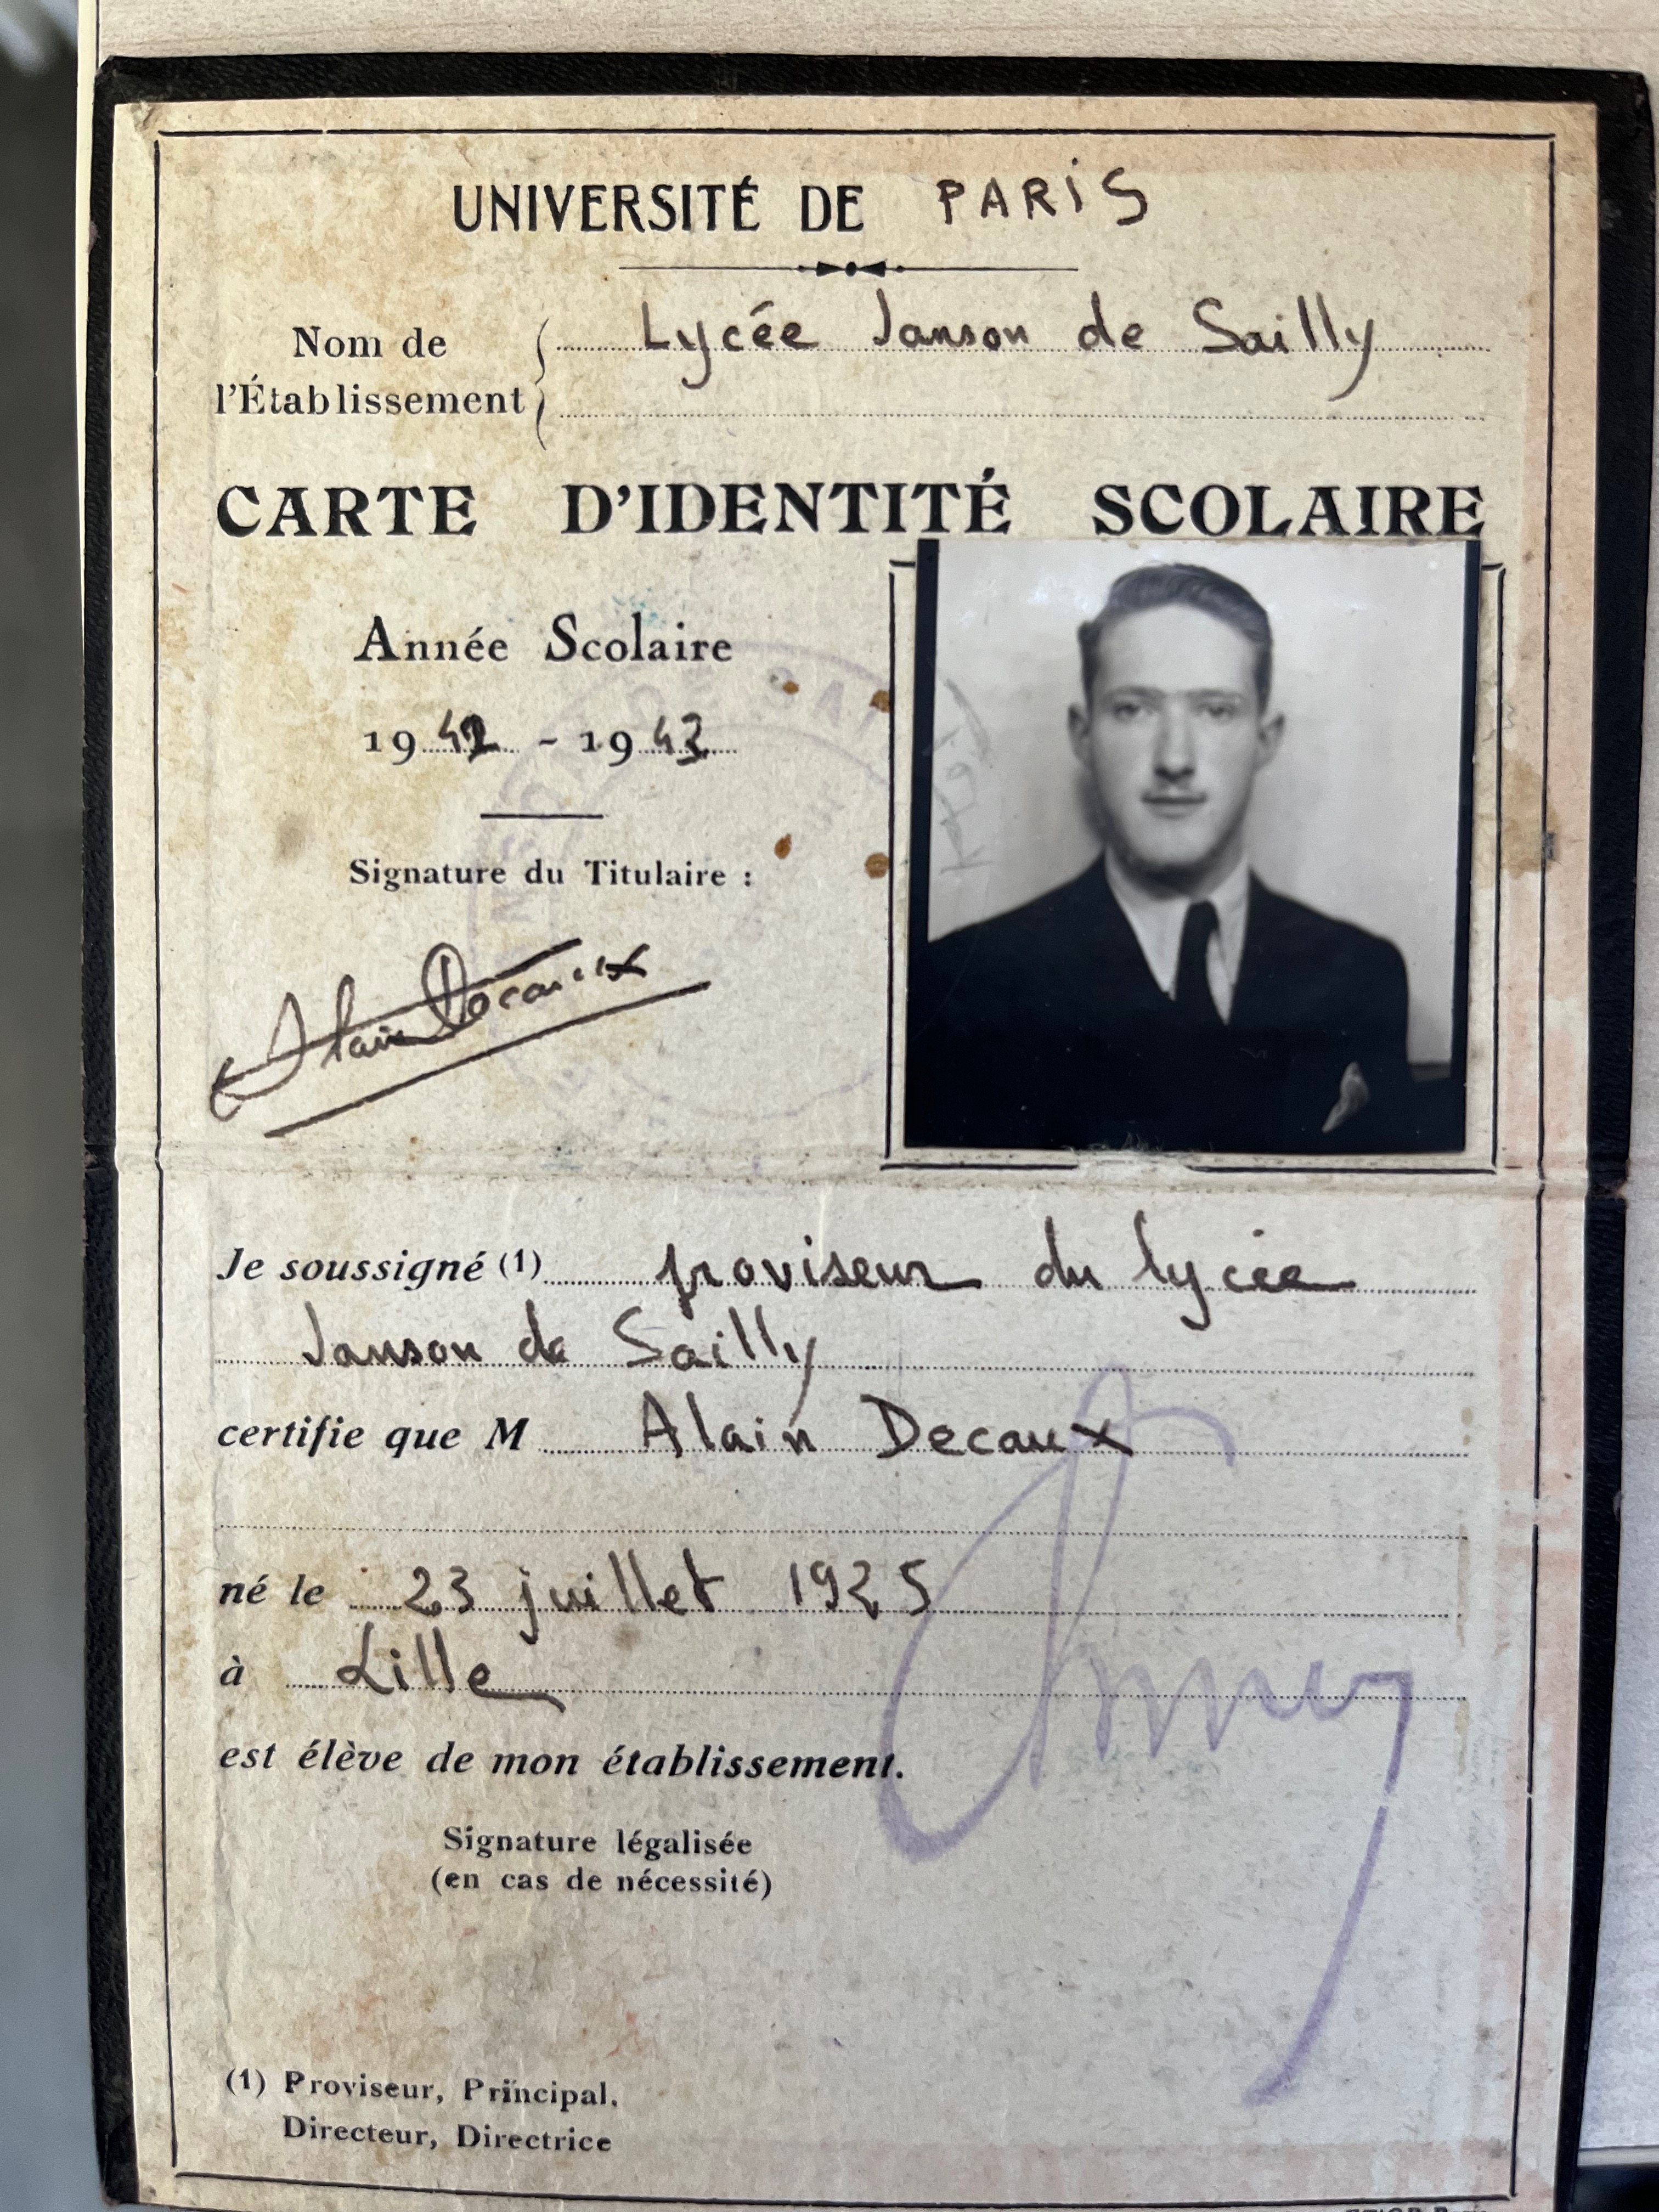 UNIVERSITÉ DE PARIS
Nom de l'Établissement
Lycée Janson de Sailly
CARTE D'IDENTITÉ SCOLAIRE
Année Scolaire
1942 - 1943
Signature du Titulaire :
Alain Decaux
Je soussigné (1) proviseur du lycée
Janson de Sailly
certifie que M Alain Decaux
né le 23 juillet 1925
à Lille
est élève de mon établissement.
Signature légalisée
(en cas de nécessité)
(1) Proviseur, Principal,
Directeur, Directrice